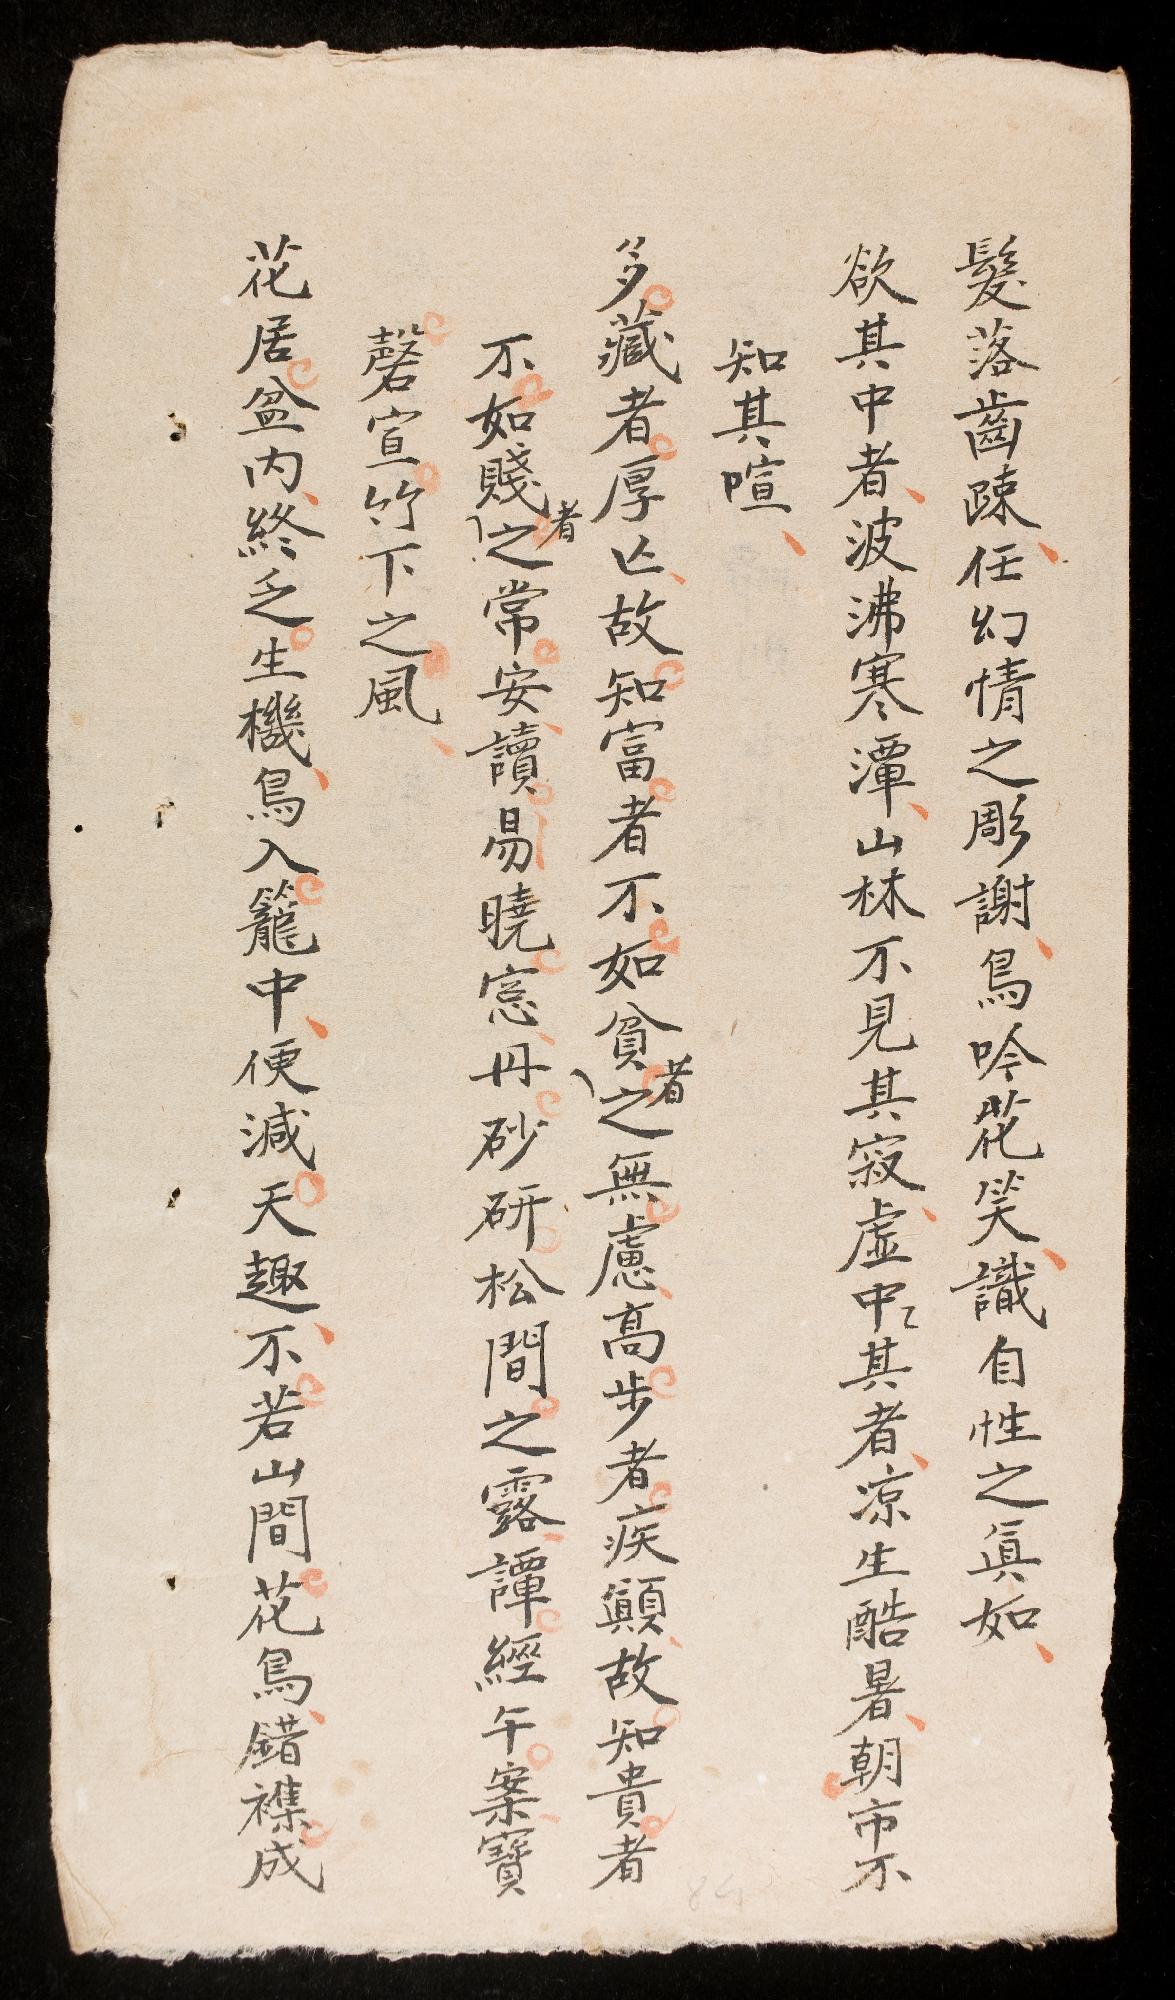 髮落齒疎任幻情之彫謝鳥吟花笑識自性之眞如
欲其中者波沸寒潭山林不見其寂虛中〻其者凉生酷暑朝市不
知其喧
多藏者厚亡故知富者不如貧之者無慮高步者疾顚故知貴者
不如賤之者常安讀易曉窓丹砂硏松間之露譚經午案寶
磬宣竹下之風
花居盆內終乏生機鳥入籠中便減天趣不若山間花鳥錯襍成